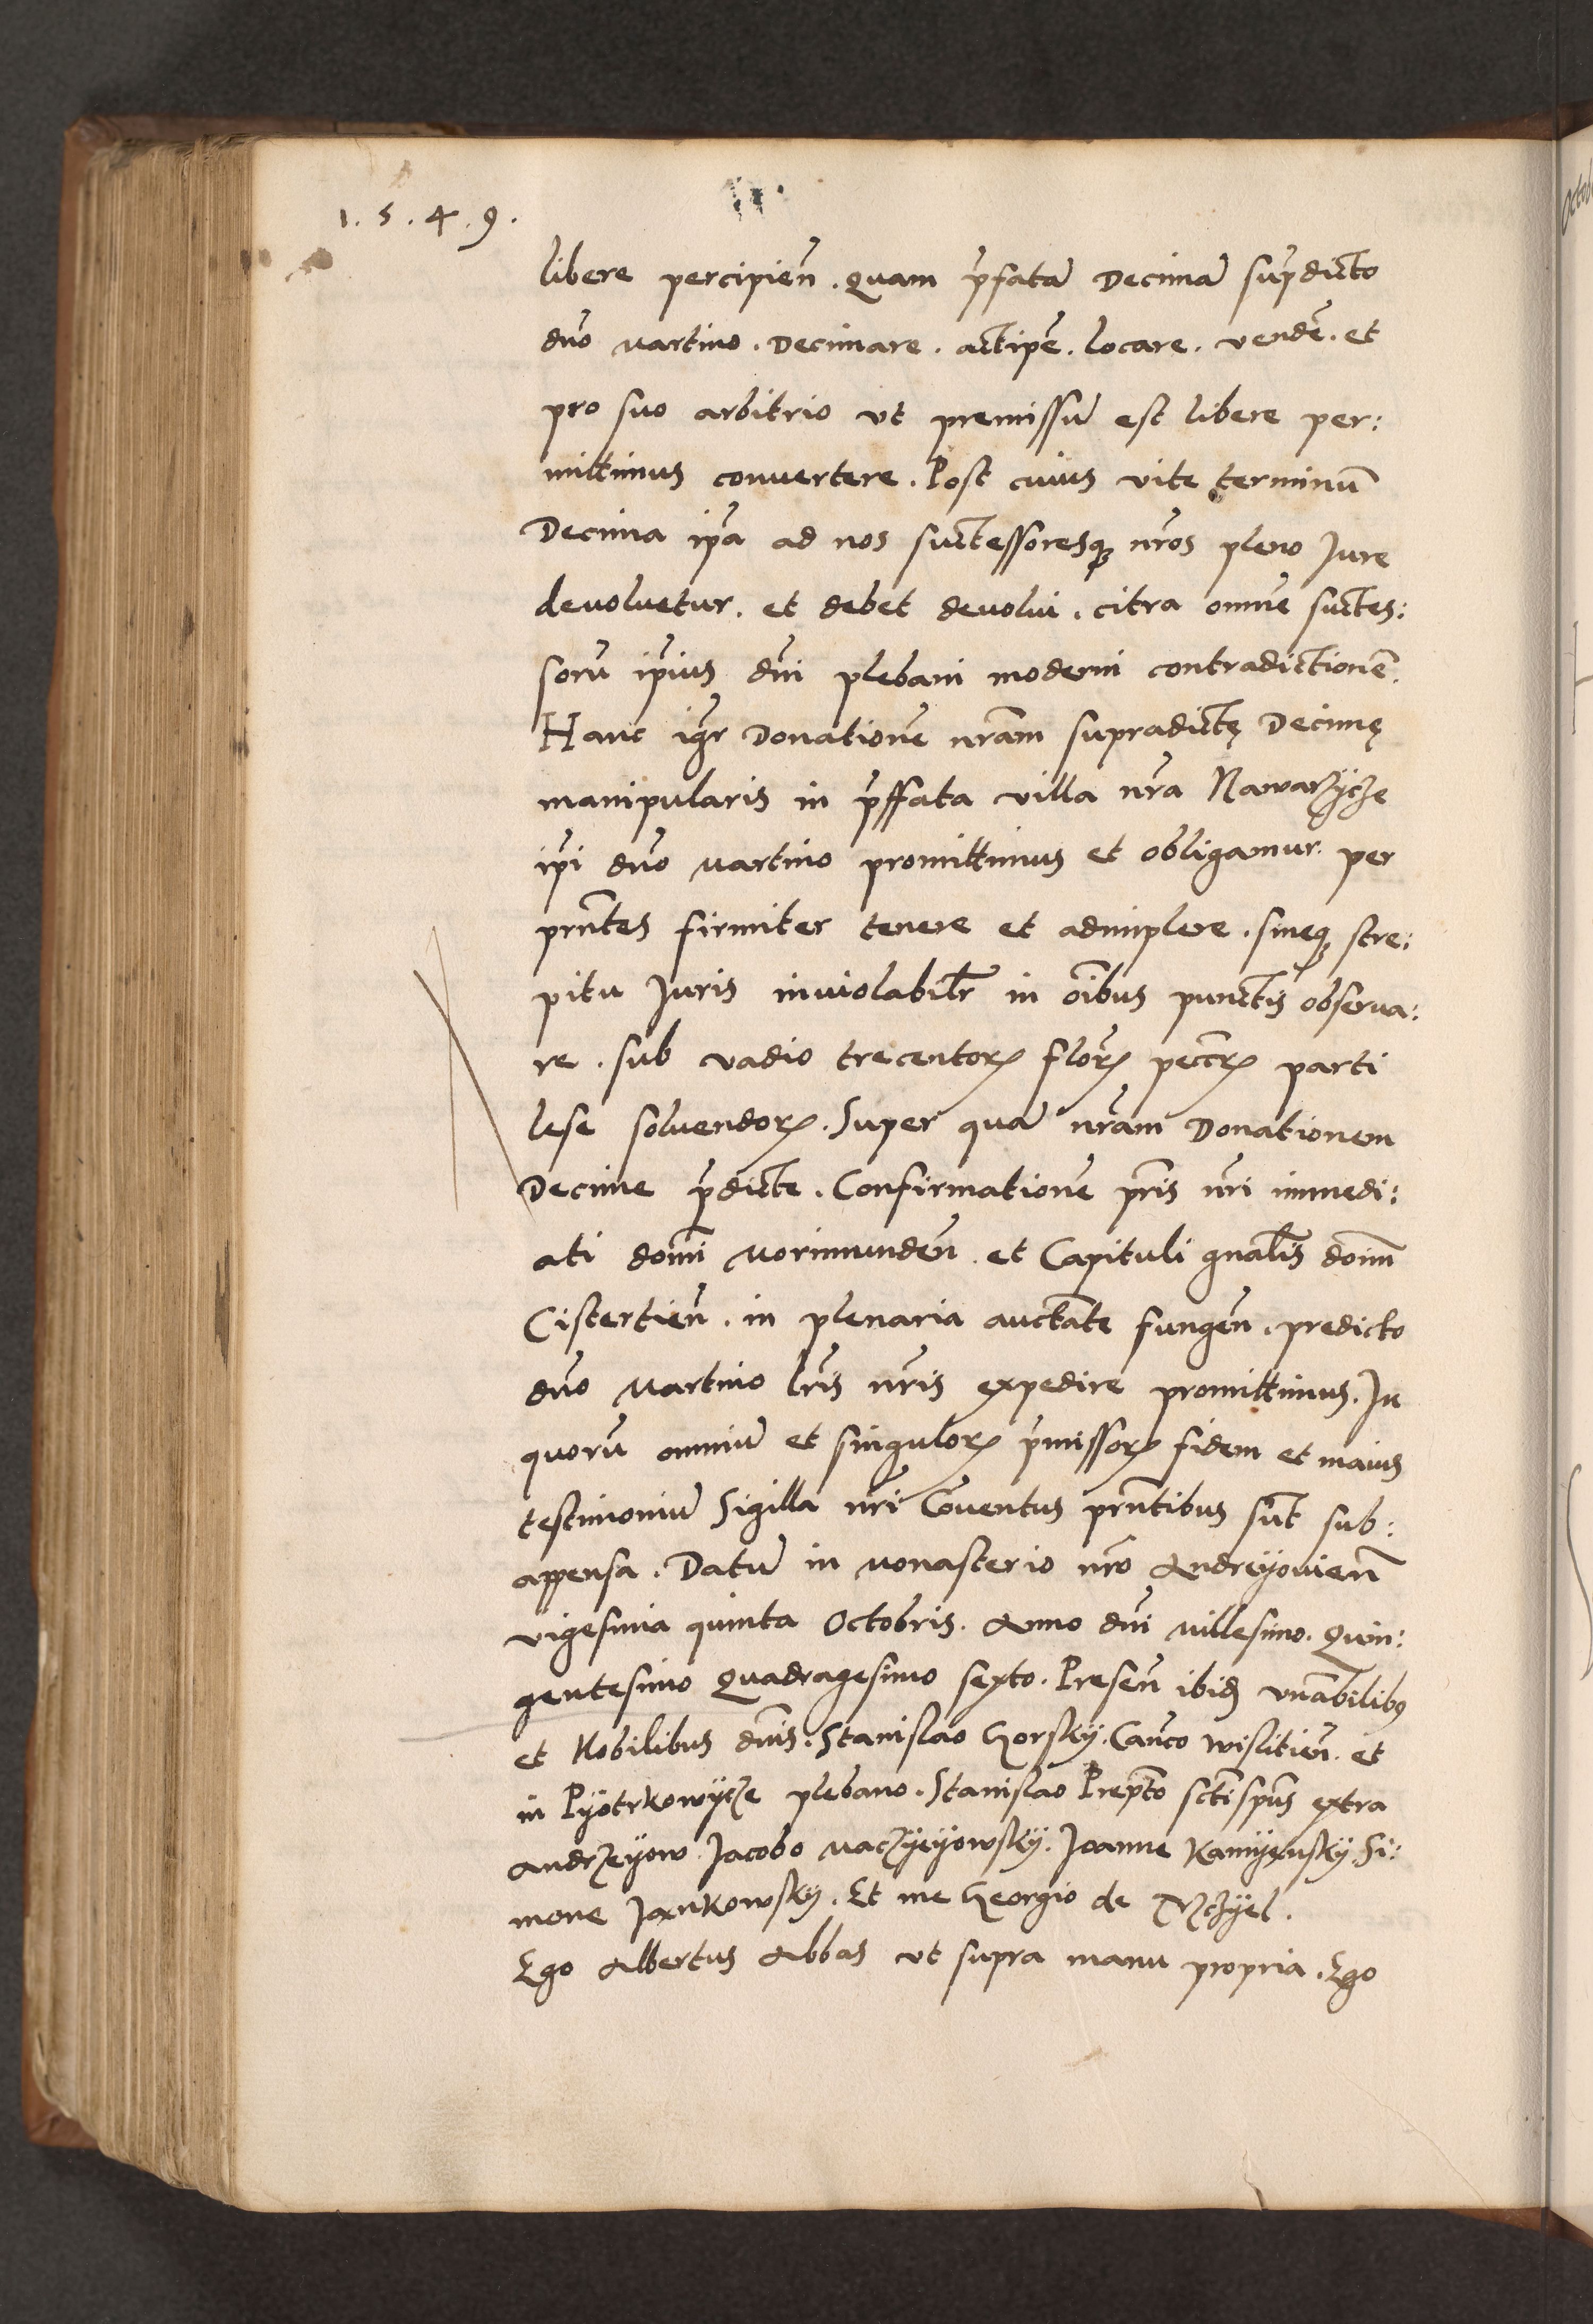 1.5.4.9.
libere percipień. Quam p̄fatā Decimā sup̄dicto
dño Martino. Decimare. accipē. locare. vendē. et
pro suo arbitrio vt premissū est libere per:
mittimus conuertere. Post cuius vite terminū
Decima ip̄a ad nos successoresq3 nr̄os pleno Jure
deuoluetur. et debet deuolui. citra omnē succes:
sorū ip̄ius dñi plebani moderni contradictionē.
Hanc igr̄ Donationē nr̄am supradictę Decimę
manipularis in p̄ffata villa nr̄a Nawarzÿcze
ip̄i dño Martino promittimus et obligamur. per
pn̄tes firmiter tenere et adimplere. sineq3 stre:
pitu Juris inuiolabilr̄ in oībus punctis obserua:
re. sub vadio trecentoꝝ flōrꝝ peccr̄ꝝ parti
lese soluendoꝝ. Super quā nr̄am Donationem
Decime p̄dicte. Confirmationē pr̄is nr̄i immedi:
ati domī Morimundeń. et Capituli gn̄alis domī
Cistertień. in plenaria auctāte fungeń. predicto
dño Martino lr̄is nr̄is expedire promittimus. In
quorū omniū et singuloꝝ p̄missoꝝ fidem et maius
testimoniū Sigilla nr̄i Cōuentus pn̄tibus sūt sub:
appensa. Datū in Monasterio nr̄o Andreÿouień
vigesima quinta Octobris. Anno dñi Millesimo. Quin:
gentesimo Quadragesimo sexto. Preseń ibid3 vn̄abilibus
et Nobilibus dn̄is. Stanislao Gorskÿ. Cańco wislitień. et
in Pÿotrkowÿcze plebano. Stanislao Prep̄to sctī sp̄us extra
Andrzeÿow. Jacobo Maczÿeÿowskÿ. Joanne Kamÿenskÿ. Si:
mone Jankowskÿ. Et me Georgio de
Ego Albertus Abbas vt supra manu propria. Ego